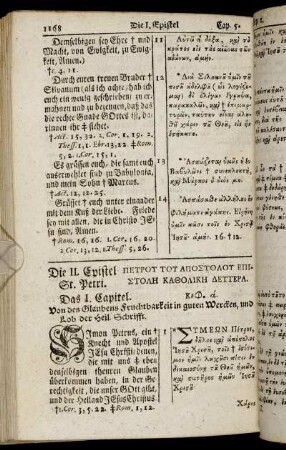 1168 Die I. Epistel Cap. 5.
Demselbigen sey Ehre † und
Macht, von Ewigkeit, zu Ewig-
keit, Amen.)
† c. 4. 11.
Durch euren treuen Bruder †
Silvanum (als ich achte) hab ich
euch ein wenig geschrieben: zu er-
mahnen und zu bezeugen, daß das
die rechte Gnade Gottes ist, da-
rinnen ihr ‡ stehet.
† Act. 15, 32. 2. Cor. 1, 19. 2.
Thess. 1, 1. Ebr. 13, 22 ‡ Rom.
5, 2. 1. Cor. 15, 1.
Es grüssen euch, die samt euch
auserwehlet sind zu Babylonia,
und mein Sohn † Marcus.
† Act. 12, 12. 25.
Grüsset † euch unter einander
mit dem Kuß der Liebe. Friede
sey mit allen, die in Christo JE-
su sind, Amen.
† Rom. 16, 16. 1. Cor. 16, 20.
2. Cor. 13, 12. 1. Thess. 5, 26.
11
12
13
14
Αὐτῷ ἡ δόξα, καὶ τὸ
κράτος εἰς τοὺς αἰῶνας τῶν
αἰώνων, ἀμήν.
Διὰ Σιλουανοῦ ὑμῖν τοῦ
πιστοῦ ἀδελφοῦ, ὡς λογί-
ζομαι, δι' ὀλίγων ἔγραψα,
παρακαλῶν, καὶ ἐπιμαρτυ-
ρῶν ταύτην εἶναι ἀληθῆ
χάριν τοῦ Θεοῦ, εἰς ἣν
ἑστήκατε.
Ἀσπάζεται ὑμᾶς ἡ ἐν
Βαβυλῶνι συνεκλεκτὴ,
καὶ Μάρκος ὁ υἱός μου.
Ἀσπάσασθε ἀλλήλους
ἐν φιλήματι ἀγάπης.
Εἰρήνη ὑμῖν πᾶσι τοῖς ἐν
Χριστῷ Ἰησοῦ, ἀμήν.
Die II. Epistel
St. Petri.
ΠΕΤΡΟΥ ΤΟΥ ΑΠΟΣΤΟΛΟΥ ΕΠΙ-
ΣΤΟΛΗ ΚΑΘΟΛΙΚΗ ΔΕΥΤΕΡΑ.
Das I. Capitel. Κεφ. α.
Von des Glaubens Fruchtbarkeit in guten Wercken, und
Lob der Heil. Schrifft.
SImon Petrus, ein †
Knecht und Apostel
JEsu Christi: denen,
die mit uns ‡ eben
denselbigen theuren Glauben
überkommen haben, in der Ge-
rechtigkeit, die unser Gott gibt,
und der Heiland JEsus Christus
† 1. Cor. 3, 5. 22. ‡ Rom. 1, 12.
1
ΣΥΜΕΩΝ Πέτρος,
δοῦλος καὶ ἀπόστολος
Ἰησοῦ Χριστοῦ, τοῖς
Χάρις